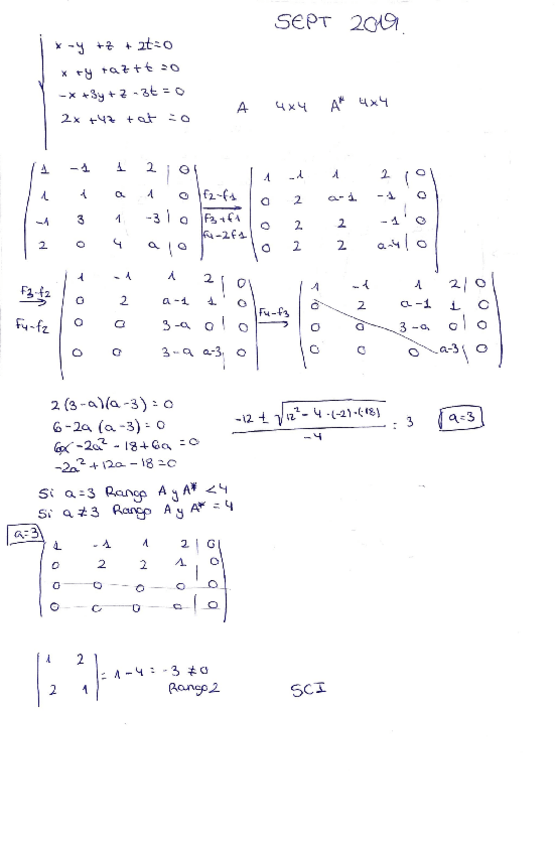 SEPT 2019.
x - y + z + 2t = 0
x + y + az + t = 0
-x + 3y + z - 3t = 0
2x + 4z + at = 0
A 4x4 A* 4x4
1 -1 1 2 | 0
1 1 a 1 0
-1 3 1 -3 | 0
2 0 4 a | 0
f2-f1
F3+f1
F4-2f1
1 -1 1 2 | 0
0 2 a-1 -1 | 0
0 2 2 -1 | 0
0 2 2 a-4 | 0
F3-f2
F4-f2
1 -1 1 2 | 0
0 2 a-1 1 0
0 0 3-a 0 | 0
0 0 3-a a-3 | 0
F4-f3
1 -1 1 2 | 0
0 2 a-1 1 0
0 0 3-a 0 | 0
0 0 0 a-3 | 0
2(3-a)(a-3) = 0
6-2a (a-3) = 0
6a -2a² - 18 + 6a = 0
-2a² + 12a - 18 = 0
-12 ± √12² - 4·(-2)·(-18) / -4 = 3 a=3
Si a=3 Rango A y A* < 4
Si a≠3 Rango A y A* = 4
a=3
1 -1 1 2 | 0
0 2 2 1 | 0
0 0 0 0 | 0
0 0 0 0 | 0
1 2
2 1
= 1-4 = -3 ≠ 0
Rango 2
SCI